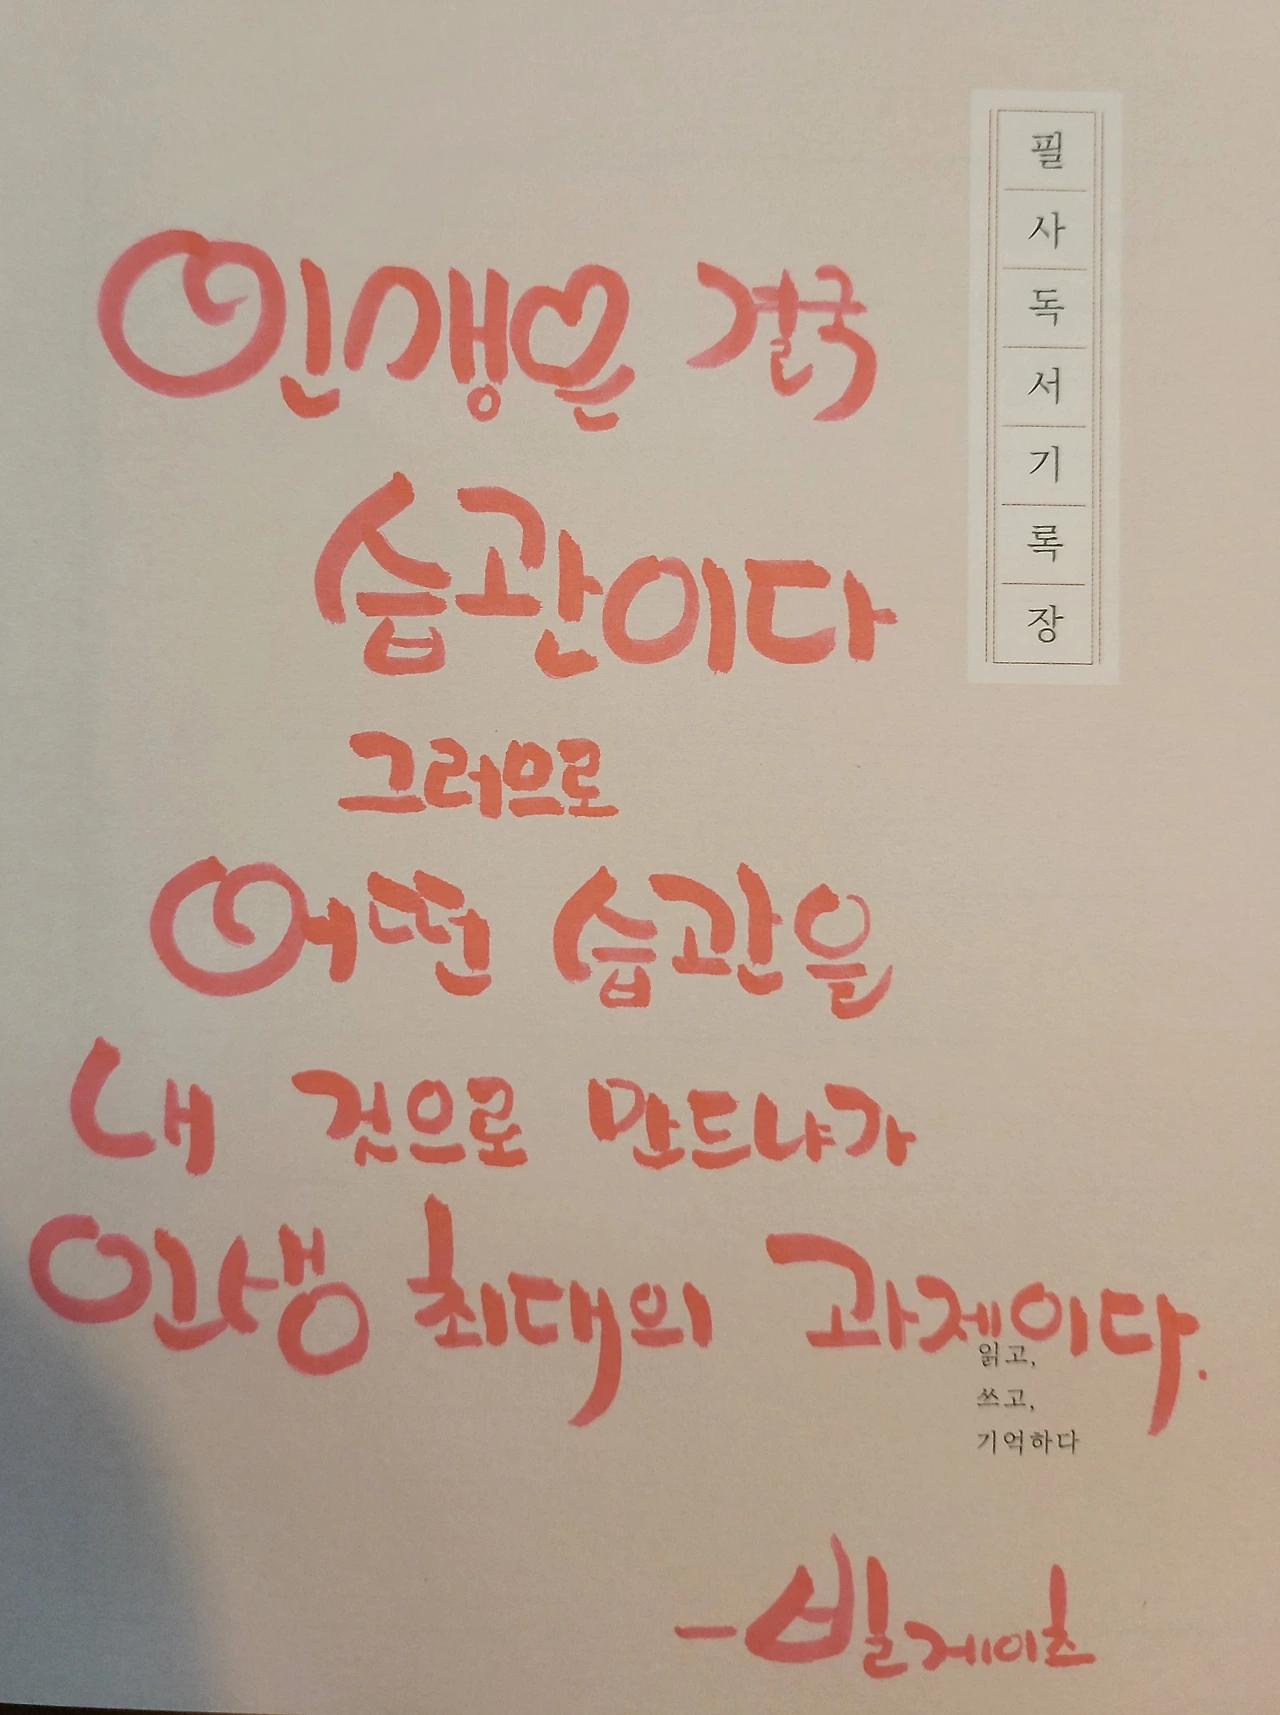 필사독서기록장
인생은 결국
습관이다
그러므로
어떤 습관을
내 것으로 만드냐가
인생 최대의 과제이다.
읽고,
쓰고,
기억하다
-빌게이츠